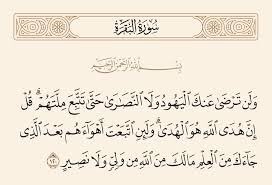 سُورَةُ الْبَقَرَةِ
بِسْمِ اللَّهِ الرَّحْمَٰنِ الرَّحِيمِ
وَلَن تَرْضَىٰ عَنكَ الْيَهُودُ وَلَا النَّصَارَىٰ حَتَّىٰ تَتَّبِعَ مِلَّتَهُمْ ۗ قُلْ
إِنَّ هُدَى اللَّهِ هُوَ الْهُدَىٰ ۗ وَلَئِنِ اتَّبَعْتَ أَهْوَاءَهُم بَعْدَ الَّذِي
جَاءَكَ مِنَ الْعِلْمِ مَا لَكَ مِنَ اللَّهِ مِن وَلِيٍّ وَلَا نَصِيرٍ ۝١٢٠